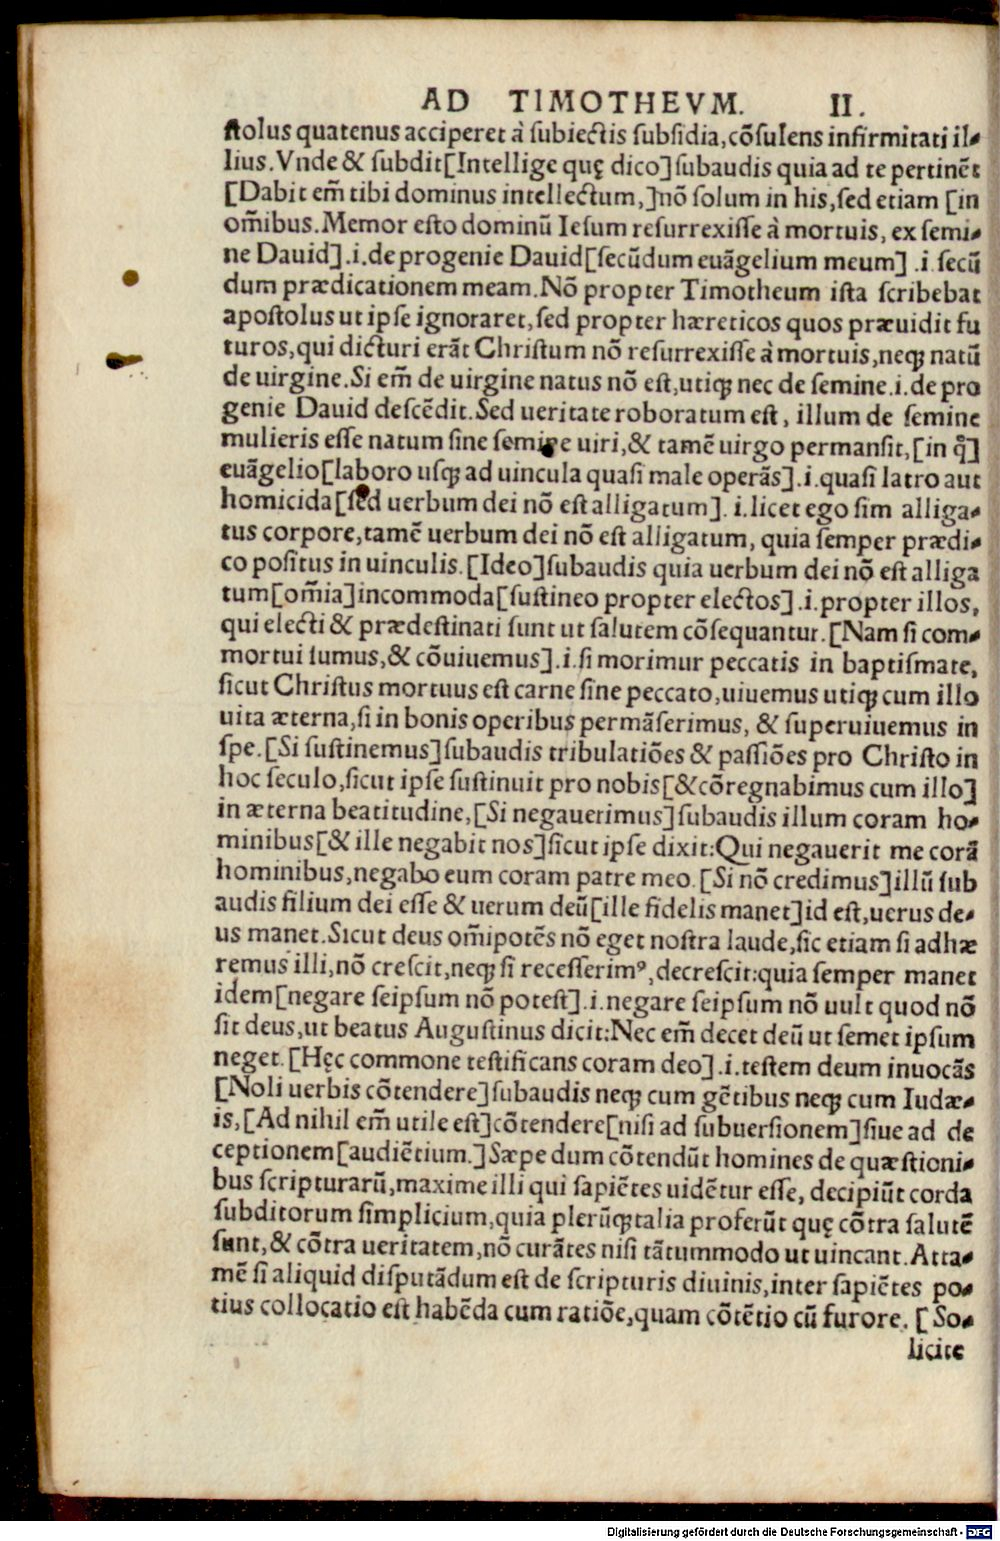 AD TIMOTHEVM. II.
ſtolus quatenus acciperet à ſubiectis ſubſidia, cõſulens infirmitati il-
lius. Vnde & ſubdit [Intellige quę dico] ſubaudis quia ad te pertinẽt
[Dabit em̃ tibi dominus intellectum,] nõ ſolum in his, ſed etiam [in
om̃ibus. Memor eſto dominũ Ieſum reſurrexiſſe à mortuis, ex ſemi-
ne Dauid] .i. de progenie Dauid [ſecũdum euãgelium meum] .i. ſecũ
dum prædicationem meam. Nõ propter Timotheum iſta ſcribebat
apoſtolus ut ipſe ignoraret, ſed propter hæreticos quos præuidit fu
turos, qui dicturi erãt Chriſtum nõ reſurrexiſſe à mortuis, neqꝫ natũ
de uirgine. Si em̃ de uirgine natus nõ eſt, utiqꝫ nec de ſemine .i. de pro
genie Dauid deſcẽdit. Sed ueritate roboratum eſt, illum de ſemine
mulieris eſſe natum ſine ſemine uiri, & tamẽ uirgo permanſit, [in q̊]
euãgelio [laboro uſqꝫ ad uincula quaſi male operãs] .i. quaſi latro aut
homicida [ſed uerbum dei nõ eſt alligatum]. i. licet ego ſim alliga-
tus corpore, tamẽ uerbum dei nõ eſt alligatum, quia ſemper prædi-
co poſitus in uinculis. [Ideo] ſubaudis quia uerbum dei nõ eſt alliga
tum [om̃ia] incommoda [ſuſtineo propter electos] .i. propter illos,
qui electi & prædeſtinati ſunt ut ſalutem cõſequantur. [Nam ſi com-
mortui ſumus, & cõuiuemus] .i. ſi morimur peccatis in baptiſmate,
ſicut Chriſtus mortuus eſt carne ſine peccato, uiuemus utiqꝫ cum illo
uita æterna, ſi in bonis operibus permãſerimus, & ſuperuiuemus in
ſpe. [Si ſuſtinemus] ſubaudis tribulatiões & paſſiões pro Chriſto in
hoc ſeculo, ſicut ipſe ſuſtinuit pro nobis [& cõregnabimus cum illo]
in æterna beatitudine, [Si negauerimus] ſubaudis illum coram ho-
minibus [& ille negabit nos] ſicut ipſe dixit: Qui negauerit me corã
hominibus, negabo eum coram patre meo. [Si nõ credimus] illũ ſub
audis filium dei eſſe & uerum deũ [ille fidelis manet] id eſt, uerus de-
us manet. Sicut deus om̃ipotẽs nõ eget noſtra laude, ſic etiam ſi adhæ
remus illi, nõ creſcit, neqꝫ ſi receſſerimꝰ, decreſcit: quia ſemper manet
idem [negare ſeipſum nõ poteſt] .i. negare ſeipſum nõ uult quod nõ
ſit deus, ut beatus Auguſtinus dicit: Nec em̃ decet deũ ut ſemet ipſum
neget. [Hęc commone teſtificans coram deo] .i. teſtem deum inuocãs
[Noli uerbis cõtendere] ſubaudis neqꝫ cum gẽtibus neqꝫ cum Iudæ-
is, [Ad nihil em̃ utile eſt] cõtendere [niſi ad ſubuerſionem] ſiue ad de
ceptionem [audiẽtium.] Sæpe dum cõtendũt homines de quæſtioni-
bus ſcripturarũ, maxime illi qui ſapiẽtes uidẽtur eſſe, decipiũt corda
ſubditorum ſimplicium, quia plerũqꝫ talia proferũt quę cõtra ſalutẽ
ſunt, & cõtra ueritatem, nõ curãtes niſi tãtummodo ut uincant. Atta-
mẽ ſi aliquid diſputãdum eſt de ſcripturis diuinis, inter ſapiẽtes po-
tius collocatio eſt habẽda cum ratiõe, quam cõtẽtio cũ furore. [So-
licite
Digitalisierung gefördert durch die Deutsche Forschungsgemeinschaft - DFG